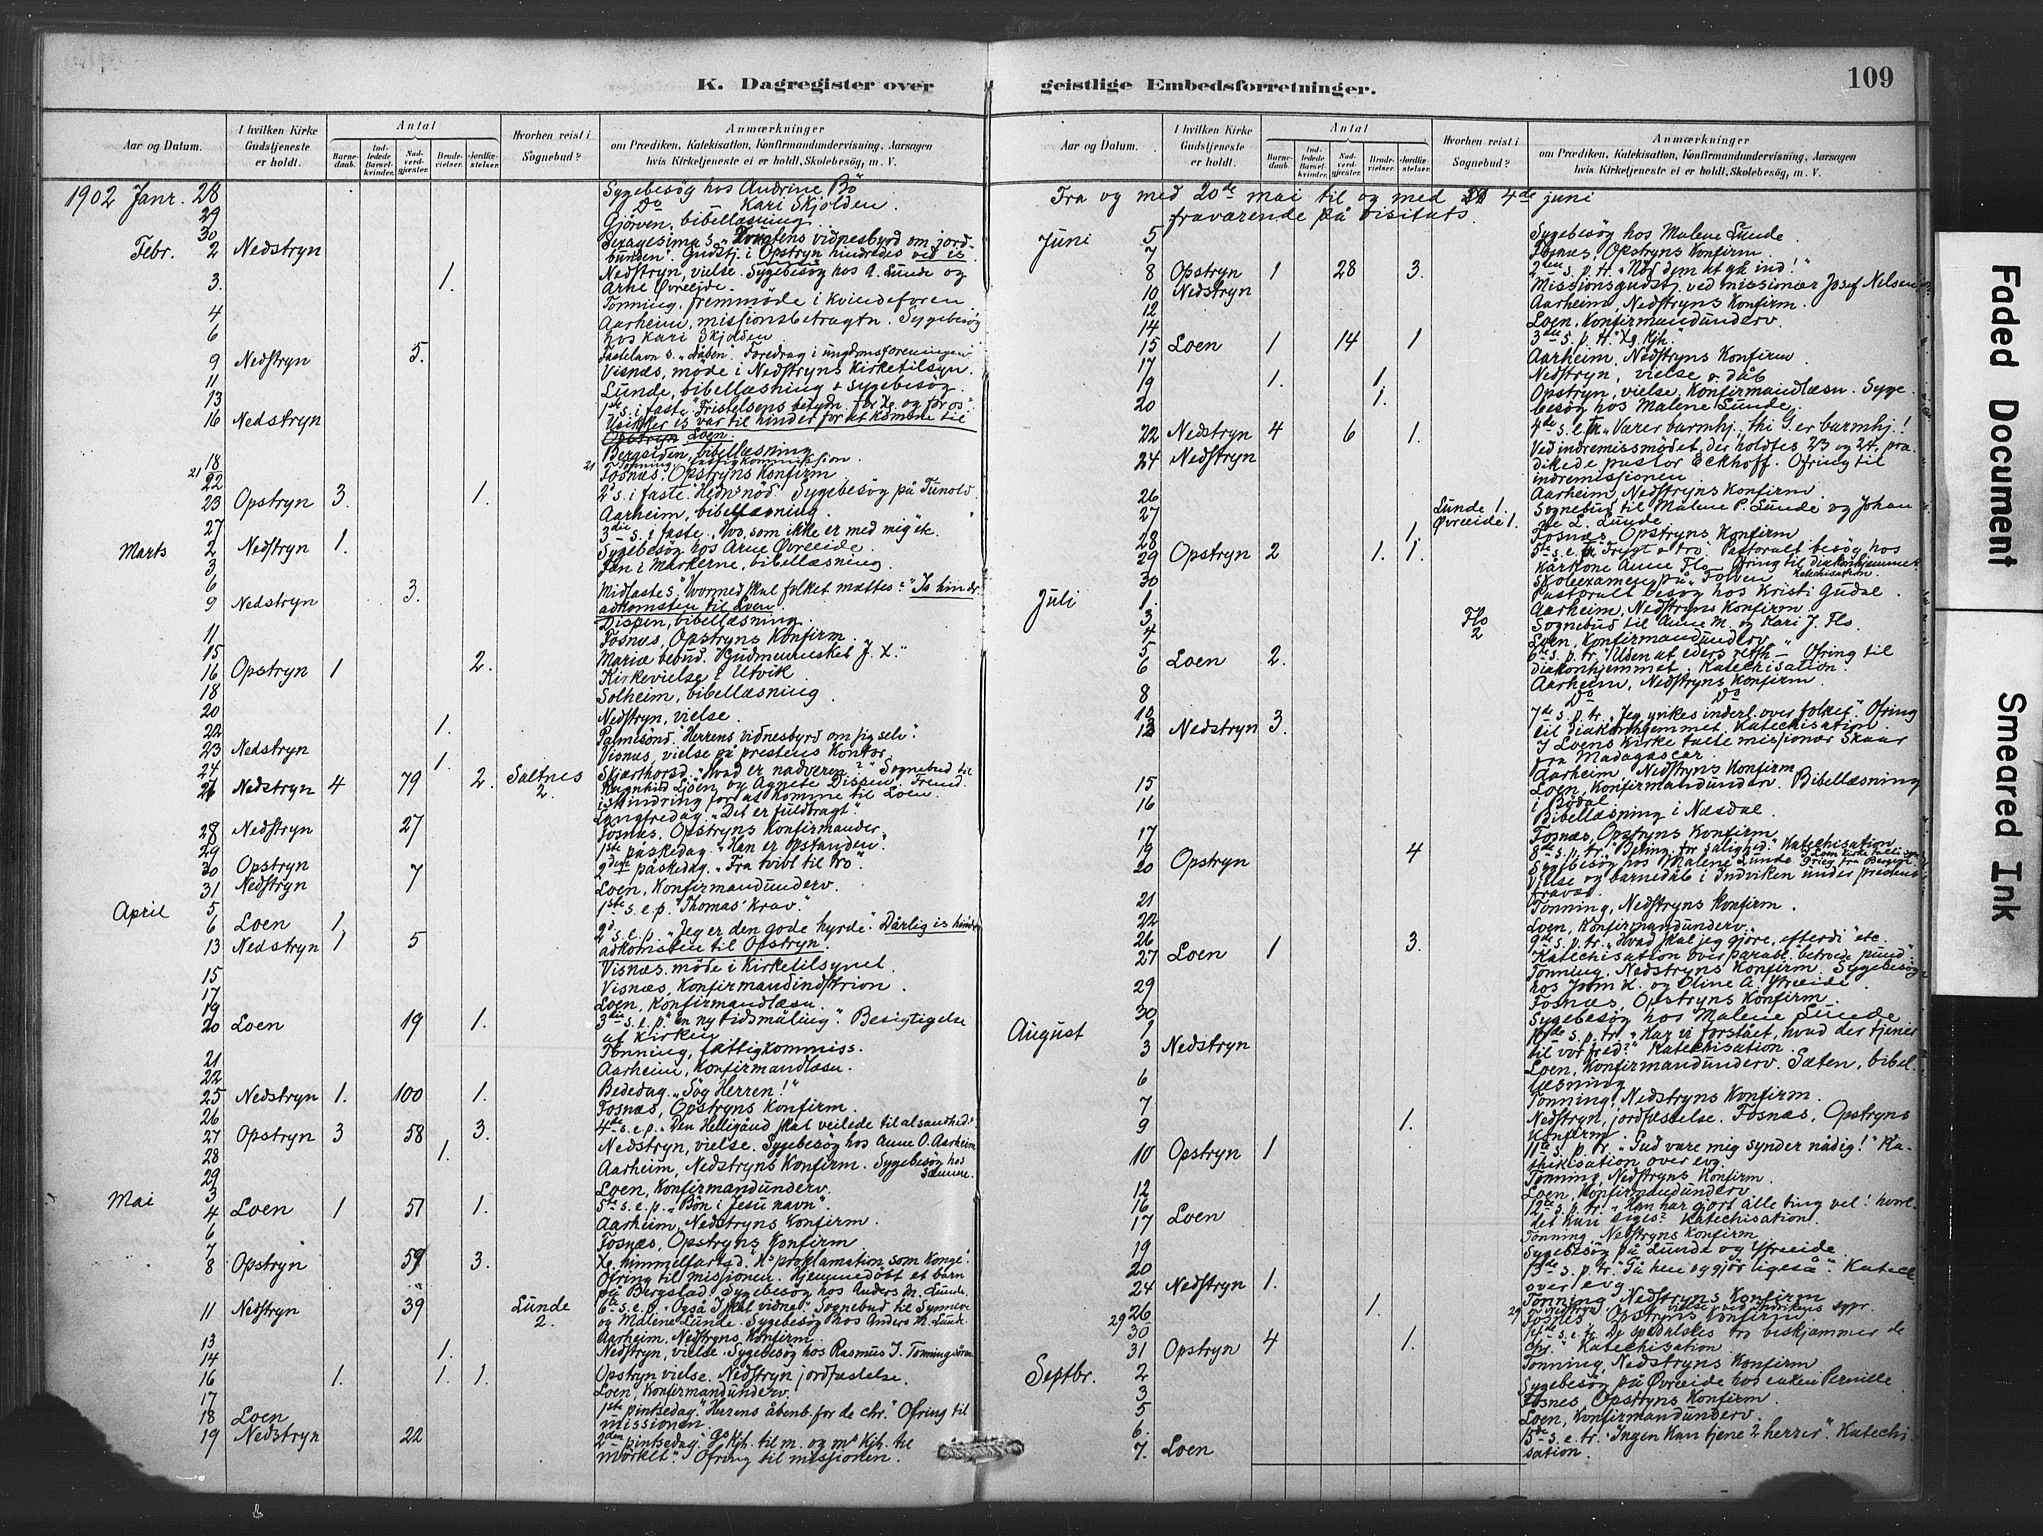 K. Dagregister over geistlige Embedsforretninger.
109
Aar og Datum.
I hvilken Kirke Gudstjeneste er holdt.
Antal
Barnedaab.
Indledede Barselkvinder.
Nadverdgjester.
Brudevielser.
Jordfæstelser.
Hvorhen reist i Sognebud?
Anmærkninger
om Prædiken, Katekisation, Konfirmandundervisning, Aarsagen
hvis Kirketjeneste ei er holdt, Skolebesøg, m. V.
1902 Janr. 28 Sygebesøg hos Andrine Bö
29 Do Kari Skjolden.
30 Gjörven, bibellæsning.
Febr. 2 Nedstryn Sexagesima s. vidnesbyrd om jord-
bunden". Gudstj. i Opstryn hindredes ved is.
3. 1. Nedstryn, vielse. Sygebesøg hos A. Lunde og
Arne Øvreeide.
4 Tonning, fremmöde i kvindeforen
6 Aarheim, missionsbetragtn. Sygebesøg
hos Kari Skjolden
9 Nedstryn 5. Fastelavn s. "Dåben". Foredrag i ungdomsforeningen
11 Visnæs, möde i Nedstryns Kirketilsyn.
13 Lunde, bibellæsning & sygebesøg.
16 Nedstryn 1ste s. i faste "Fristelsens betydn. for Xs og for os".
Usikker is var til hinder for at komme til
Opstryn Loen.
18 Bergsiden, bibellæsning
21 21 Tonning, fattigkommission.
22 Fosnæs, Opstryns Konfirm
23 Opstryn 3. 1. 2d s. i faste. Sygebesøg på Tunold.
27 Aarheim, bibellæsning.
Marts 2 Nedstryn 1. 3die s. i faste. "Hvo, som ikke er med mig" etc.
3 Sygebesøg hos Arne Øvreeide.
6 Fan i Markerne, bibellæsning.
9 Nedstryn 3. Midfaste s. "Hvormed skal folket mættes?" Is hindr.
adkomsten til Loen.
11 Dispen, bibellæsning.
15 Fosnæs, Opstryns Konfirm.
16 Opstryn 1 2. Mariæ bebud. "Gudmennesket J. X."
18 Kirkevielse i Utvik
20 Solheim, bibellæsning
22 1. Nedstryn, vielse.
23 Nedstryn Palmesönd. "Herrens vidnesbyrd om sig selv".
24 1. Visnæs, vielse på prestens kontor.
27 Nedstryn 4 79 2. Saltnes 2. Skjærthorsd. "Hvad er nadveren?" Sognebud til
Ragnhild Ljöen og Agnete Dispen. Fremd.
ishindring for at komme til Loen.
28 Nedstryn 27 Langfredag. "Det er fuldbragt".
29 Fosnæs, Opstryns Konfirmander.
30 Opstryn 7 1ste påskedag. "Han er opstanden".
31 Nedstryn 2den påskedag. "Fra tvivl til tro".
April 5 Loen, Konfirmandunderv.
6 Loen 1. 1ste s. e. p. "Thomas' krav"
13 Nedstryn 1 5 2d s. e. p. "Jeg er den gode hyrde." Dårlig is hindr.
adkomsten til Opstryn.
15 Visnæs. möde i Kirketilsynet.
17 Visnæs, Konfirmandindskrivn.
19 Loen, Konfirmandlæsn.
20 Loen 19 1. 3die s. e. p. "en ny tidsmåling". Besigtigelse
af Kirken
21 Tonning, fattigkommiss.
22 Aarheim, Konfirmandlæsn.
25 Nedstryn 1. 100 1. Bededag. "Søg Herren!"
26 Fosnæs, Opstryns Konfirm.
27 Opstryn 3 58 3. 4de s. e. p. "Den Helligånd skal veilede til al sandhed".
28 1. Nedstryn, vielse. Sygebesøg hos Anne O. Aarheim
29 Aarheim, Nedstryns Konfirm. Sygebesøg hos
samme.
Mai 3 Loen, Konfirmandunderv.
4 Loen 1 51 1. 5te s. e. p. "Bön i Jesu navn".
6 Aarheim, Nedstryns Konfirm.
7 Fosnæs, Opstryns Konfirm
8 Opstryn 59 3. Xi himmelfartsd. "Xs proklamation som konge".
Ofring til missionen. Hjemmedöbt et barn
på Bergstad. Sygebesøg hos Anders M. Lunde.
11 Nedstryn 39 Lunde 2. 6te s. e. p. "Også I skal vidne". Sognebud til Synneve
og Malene Lunde. Sygebesøg hos Anders M. Lunde.
13 Aarheim. Nedstryns Konfirm.
14 1. Nedstryn, vielse. Sygebesøg hos Rasmus J. Tonningsören
16 1. 1. 1. Opstryn vielse. Nedstryn jordfæstelse.
17 Loen, Konfirmandunderv.
18 Loen 1ste pintsedag. "Herrens åbenb. for de chr." Ofring til
missionen.
19 Nedstryn 22 2den pintsedag. "Gs kjh. til m. og ms kjh. til
mörket". Ofring til missionen.
Fra og med 20de mai til og med 4de juni
fraværende på visitats.
Juni 5 Sygebesøg hos Malene Lunde.
7 Fosnæs, Opstryns Konfirm.
8 Opstryn 1 28 3. 2den s. p. tr. "Nöd dem at gå ind!"
10 Nedstryn Missionsgudstj. ved missionær Josef Nilsen
12 Aarheim, Nedstryns Konfirm.
14 Loen, Konfirmandunderv.
15 Loen 1 14 1 3die s. p. tr. Xs Kjh.
17 Aarheim, Nedstryns Konfirm
19 1. 1. Nedstryn, vielse & dåb
20 1. Opstryn, vielse. Konfirmandlæsn. Syge-
besøg hos Malene Lunde.
22 Nedstryn 4 6 1. 4de s. e. tr. "Værer barmhj. thi G. er barmhj.!
24 Nedstryn Ved indremissmödet, der holdtes 23 og 24. præ-
dikede pastor Eckhoff. Ofring til
indremissionen.
26 Aarheim, Nedstryns Konfirm.
27 Lunde 1. Øvreeide 1. Sognebud til Malene P. Lunde og Johan
ne L. Lunde
28 1 Fosnæs, Opstryns Konfirm
29 Opstryn 2 1. 1. 5te s. e. tr. "Frygt & tro". Pastoralt besøg hos
kårkone Anne Flo. Ofring til diakonhjemmet.
Katechisation.
30 Skoleexamen på Folven
Juli 1. Pastoralt besøg hos Kristi Gudal.
3 Aarheim, Nedstryns Konfirm
4 Flo 2 Sognebud til Anne M. og Kari J. Flo.
5 Loen, Konfirmandunderv.
6 Loen 2. 6te s. p. tr. "Uden at eders retfh.–" Ofring til
diakonhjemmet. Katechisation.
8 Aarheim, Nedstryns Konfirm.
10 Do Do
13 Nedstryn 3. 7de s. p. tr. "Jeg ynkes inderl. over folket". Ofring
til diakonhjemmet. Katechisation
I Loens Kirke talte missionær Skaar
fra Madagascar.
15 Aarheim, Nedstryns Konfirm
16 Loen, Konfirmandunderv. Bibellæsning
i Bödal.
17 Bibellæsning i Næsdal.
19 Fosnæs, Opstryns Konfirm
20 Opstryn 4 8de s. p. tr. "Beting. for salighed". Katechisation
Sygebesøg hos Malene Lunde. I Loen kirke talte fra Bergen
Vielse og barnedåb i Indviken under prestens
fravær.
21 Tonning, Nedstryns Konfirm.
22
26 Loen, Konfirmandunderv.
27 Loen 1 3. 9de s. p. tr. "Hvad skal jeg gjøre, efterdi" etc
Katechisation over parabl. betroede pund".
29 Tonning. Nedstryns Konfirm. Sygebesøg
hos John K. og Oline A. Ytreeide.
30 Fosnæs, Opstryns Konfirm.
August 1 Sygebesøg hos Malene Lunde
3 Nedstryn 10de s. p. tr. "Har vi forstået, hvad der tjener
til vor fred?" Katechisation.
6 Loen, Konfirmandunderv. Sæten, bibel-
læsning
7 Tonning, Nedstryns Konfirm.
9 1. Nedstryn, jordfæstelse. Fosnæs, Opstryns
Konfirm.
10 Opstryn 1 11te s. p. tr. "Gud være mig synder nådig!" Ka-
thekisation over evg.
12 Tonning, Nedstryns Konfirm.
16 Loen, Konfirmandunderv
17 Loen 12te s. p. tr. "Han har gjort alle ting vel! hvorl.
det kan siges? Katechisation.
19 Tonning, Nedstryns Konfirm
20 Sygebesøg på Lunde og Ytreeide.
24 Nedstryn 1. 13de s. p. tr. "Gå hen og gjør ligeså". Katech
over evg
26 Tonning, Nedstryns Konfirm
29 1. 29 Nedstryn, vielse ved Indvikens spr.
30 Fosnæs Opstryns Konfirm
31 Opstryn 4 1. 14de s. e. tr. De spedalskes tro beskjæmmer de
chr." Katechisation
Septbr. 2 Tonning, Nedstryns Konfirm
3 Sygebesøg på Øvreeide hos enken Pernille
5 Fosnæs, Opstryns Konfirm.
6. Loen, Konfirmandunderv.
7. Loen 15de s. e. tr. "Ingen kan tjene 2 herrer". Katechi-
sation.
Faded Document
Smeared Ink